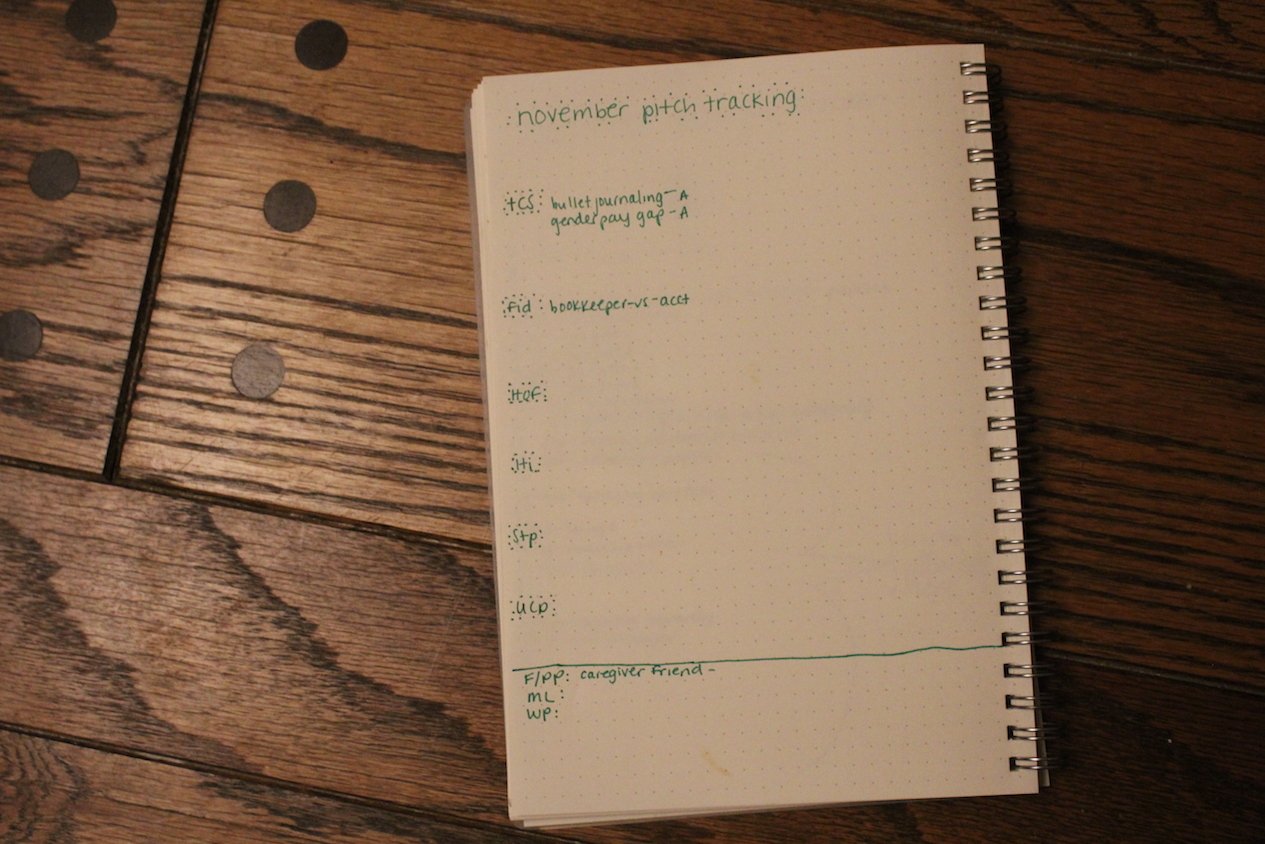 november pitch tracking
tCS: bullet journaling - A
gender pay gap - A
fid: bookkeeper-vs-acct
HaF:
Hi:
Stp:
UCp:
F/PP: caregiver friend -
ML:
WP: